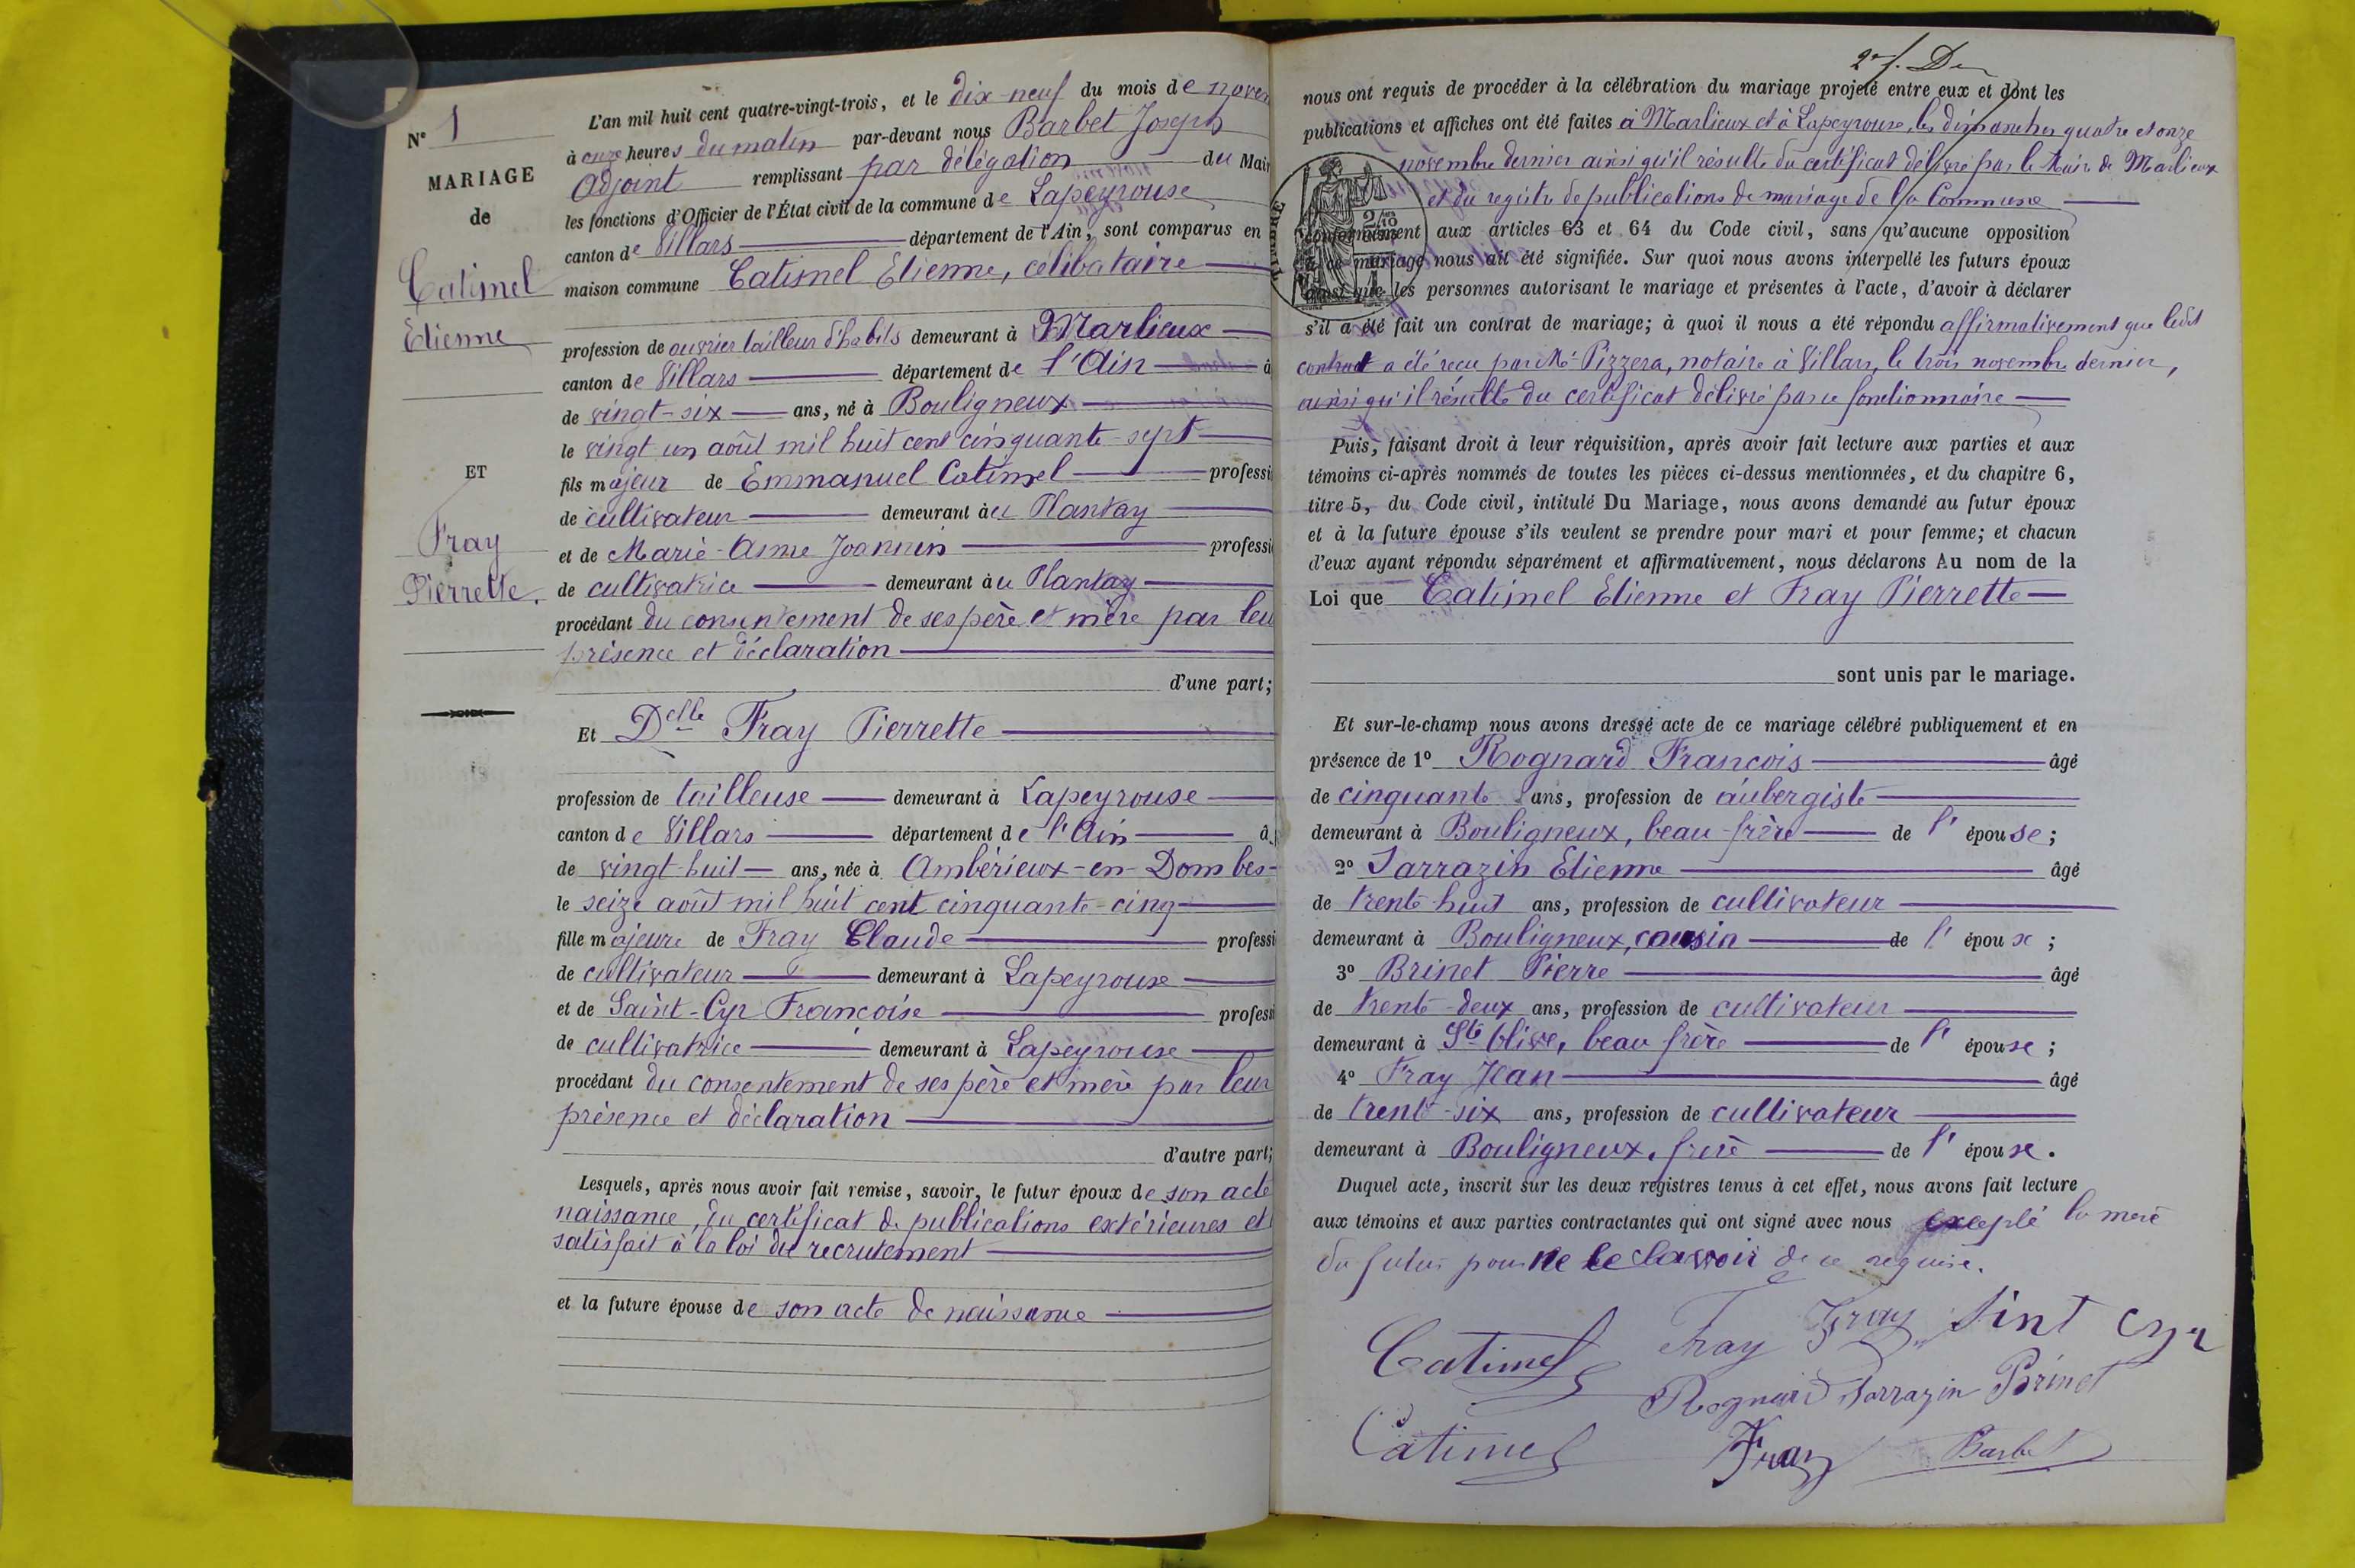 N° 1
MARIAGE
de
Catimel
Etienne
ET
Fray
Pierrette.
L'an mil huit cent quatre-vingt-trois, et le dix-neuf du mois de novem
à onze heures du matin par-devant nous Barbet Joseph
Adjoint remplissant par délégation du Mair
les fonctions d'Officier de l'État civil de la commune de Lapeyrouse
canton de Villars département de l'Ain, sont comparus en
maison commune Catimel Etienne, célibataire
profession de ouvrier tailleur d'habits demeurant à Marlieux
canton de Villars département de l'Ain â
de vingt-six ans, né à Bouligneux
le vingt un août mil huit cent cinquante-sept
fils majeur de Emmanuel Catimel professi
de cultivateur demeurant au Plantay
et de Marie-Anne Joannin professi
de cultivatrice demeurant au Plantay
procédant du consentement de ses père et mère par leu
présence et déclaration
d'une part;
Et Delle Fray Pierrette
profession de tailleuse demeurant à Lapeyrouse
canton de Villars département de l'Ain â
de vingt-huit ans, née à Ambérieux-en-Dombes
le seize août mil huit cent cinquante-cinq
fille majeure de Fray Claude professi
de cultivateur demeurant à Lapeyrouse
et de Saint-Cyr Françoise professi
de cultivatrice demeurant à Lapeyrouse
procédant du consentement de ses père et mère par leur
présence et déclaration
d'autre part;
Lesquels, après nous avoir fait remise, savoir, le futur époux de son acte
naissance, du certificat de publications extérieures et
satisfait à la loi du recrutement
et la future épouse de son acte de naissance
nous ont requis de procéder à la célébration du mariage projeté entre eux et dont les
publications et affiches ont été faites à Marlieux et à Lapeyrouse, les dimanches quatre et onze
novembre dernier ainsi qu'il résulte du certificat délivré par le Maire de Marlieux
et du registre de publications de mariage de la Commune
conformément aux articles 63 et 64 du Code civil, sans qu'aucune opposition
à ce mariage nous ait été signifiée. Sur quoi nous avons interpellé les futurs époux
ainsi que les personnes autorisant le mariage et présentes à l'acte, d'avoir à déclarer
s'il a été fait un contrat de mariage; à quoi il nous a été répondu affirmativement que ledit
contrat a été reçu par Me Pizzera, notaire à Villars, le trois novembre dernier,
ainsi qu'il résulte du certificat délivré par ce fonctionnaire
Puis, faisant droit à leur réquisition, après avoir fait lecture aux parties et aux
témoins ci-après nommés de toutes les pièces ci-dessus mentionnées, et du chapitre 6,
titre 5, du Code civil, intitulé Du Mariage, nous avons demandé au futur époux
et à la future épouse s'ils veulent se prendre pour mari et pour femme; et chacun
d'eux ayant répondu séparément et affirmativement, nous déclarons Au nom de la
Loi que Catimel Etienne et Fray Pierrette
sont unis par le mariage.
Et sur-le-champ nous avons dressé acte de ce mariage célébré publiquement et en
présence de 1° Rognard François âgé
de cinquante ans, profession de aubergiste
demeurant à Bouligneux, beau-frère de l'épouse;
2° Sarrazin Etienne âgé
de trente huit ans, profession de cultivateur
demeurant à Bouligneux, cousin de l'époux;
3° Brinet Pierre âgé
de trente-deux ans, profession de cultivateur
demeurant à Ste Olive, beau frère de l'épouse;
4° Fray Jean âgé
de trente-six ans, profession de cultivateur
demeurant à Bouligneux, frère de l'épouse.
Duquel acte, inscrit sur les deux registres tenus à cet effet, nous avons fait lecture
aux témoins et aux parties contractantes qui ont signé avec nous excepté la mère
du futur pour ne le savoir de ce requise.
Catimel Fray Fray Sint Cyr
Rognard Sarrazin Brinet
Catimel Fray Barbet